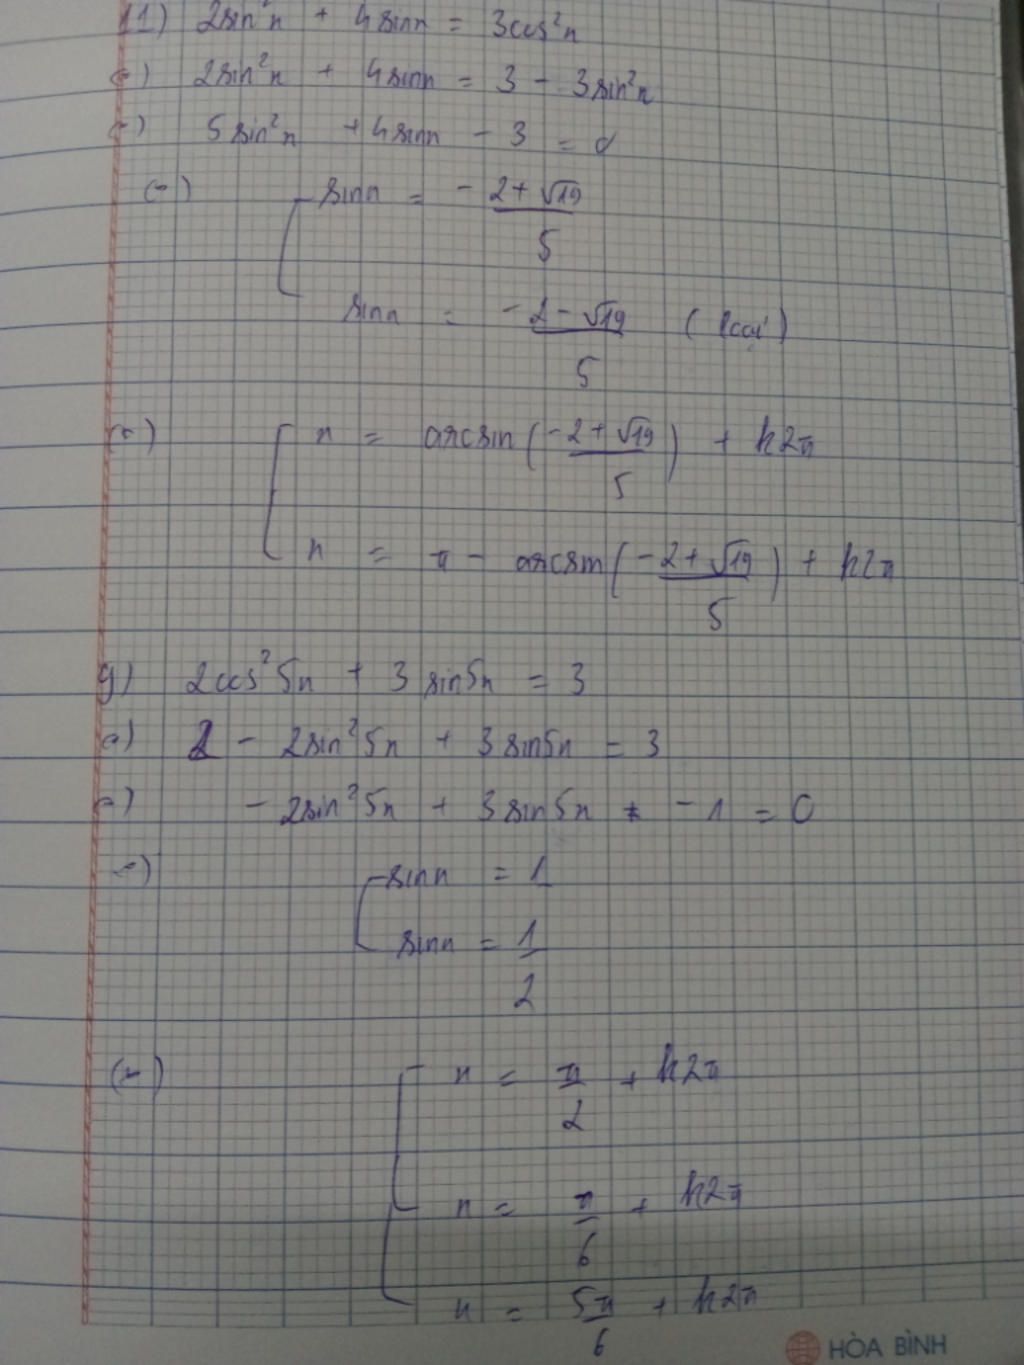 11) 2sin²x + 4sinx = 3cos²x
(=) 2sin²x + 4sinx = 3 - 3sin²x
(=) 5sin²x + 4sinx - 3 = 0
(=) [ sinx = (-2+√19)/5
sinx = (-2-√19)/5 (loại)
(=) [ x = arcsin((-2+√19)/5) + k2π
x = π - arcsin((-2+√19)/5) + k2π
g) 2cos²5x + 3sin5x = 3
(=) 2 - 2sin²5x + 3sin5x = 3
(=) -2sin²5x + 3sin5x -1 = 0
(=) [ sinx = 1
sinx = 1/2
(=) [ x = π/2 + k2π
x = π/6 + k2π
x = 5π/6 + k2π
HÒA BÌNH